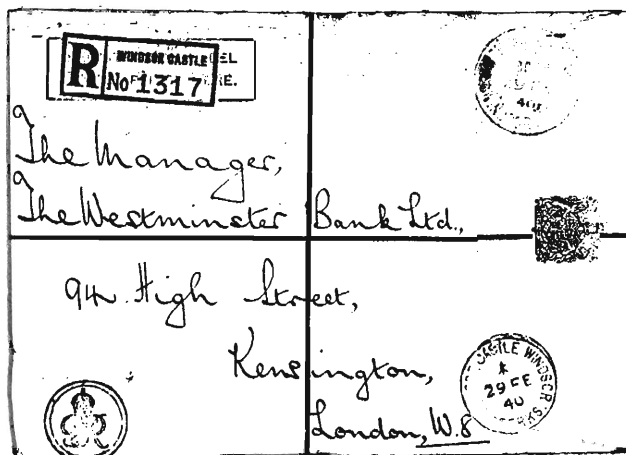 R WINDSOR CASTLE
No 1317
The Manager,
The Westminster Bank Ltd.,
94 High Street,
Kensington,
London, W.8
CASTLE WINDSOR
29 FE
40